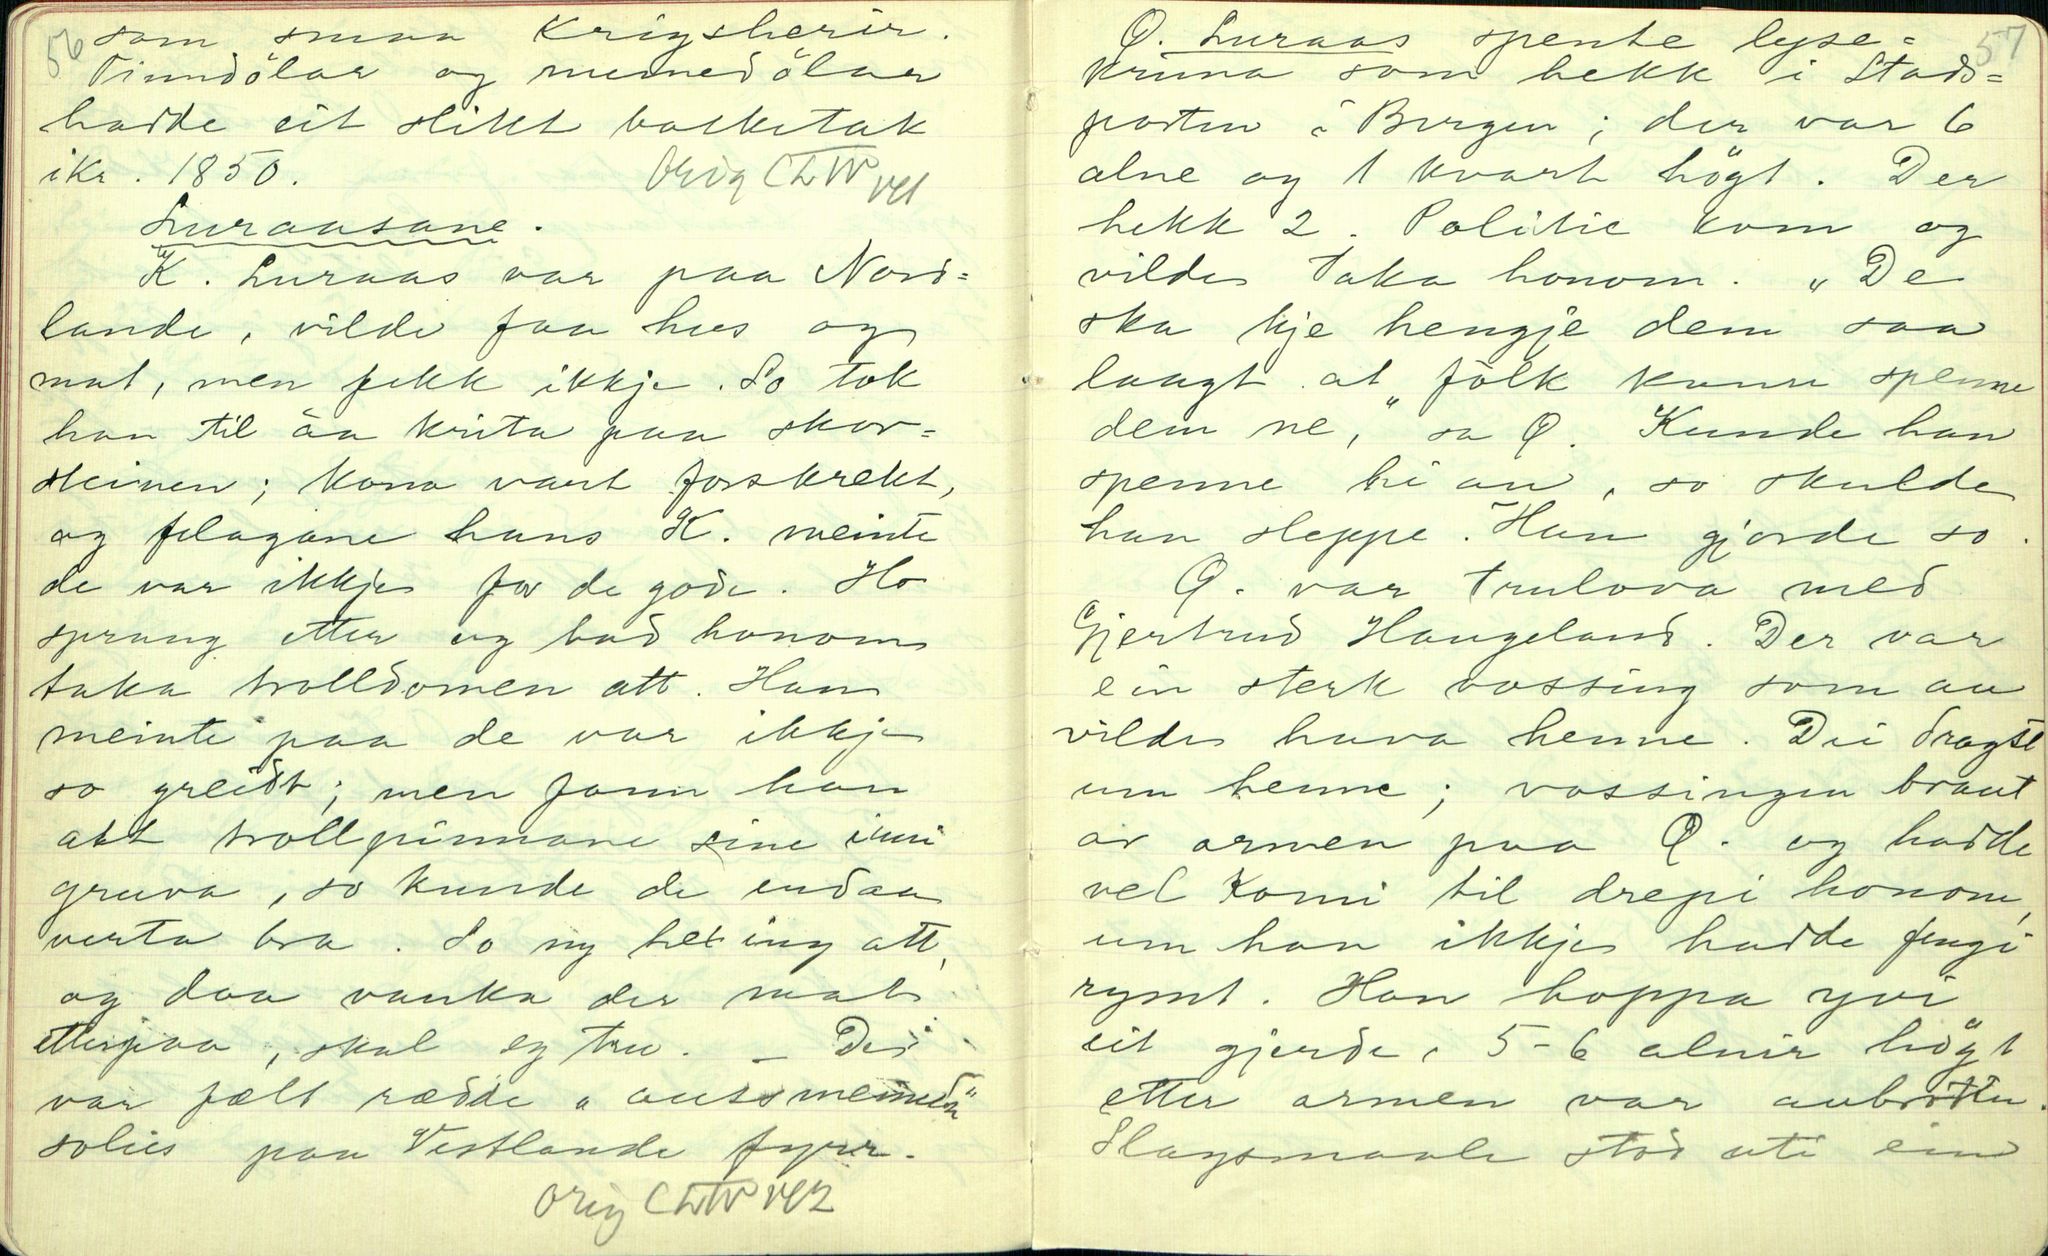 56
som smaa krigsherir.
Tinndölar og numedölar
hadde eit slikt basketak
ikr. 1850.
Orig CLW
Luraasane.
K. Luraas var paa Nord=
lande, vilde faa hus og
mat, men fekk ikkje. So tok
han til aa krita paa skor=
steinen; kona vart forskrekt,
og felagane hans K. meinte
de var ikkje for de gode. Ho
sprang etter og bad honom
taka trolldomen att. Han
meinte paa de var ikkje
so greidt; men fann han
att trollpinnane sine inni
gruva, so kunde de endaa
verta bra. So ny heксing att,
og daa vanka der mat
etterpaa, skal eg tru. – Dei
var fælt rædde
solies paa Vestlande fyrr.
Orig CLW
57
Ø. Luraas spente lyse=
kruna som hekk i Stads=
porten i Bergen; der var 6
alne og 1 kvart högt. Der
hekk 2. Politie kom og
vilde taka honom. "De
ska kje hengje dem saa
laagt at folk kunne spenne
dem ne," sa Ø. Kunde han
spenne hi au, so skulde
han sleppe. Han gjorde so.
Ø. var trulova med
Gjertrud Haugeland. Der var
ein sterk vossing som au
vilde hava henne. Dei drogst
um henne; vossingen braut
av armen paa Ø. og hadde
vel komi til drepi honom,
um han ikkje hadde fengi
rymt. Han hoppa yvi
eit gjerde, 5–6 alnir högt
etter armen var avbroten.
Slagsmaale stod uti ein